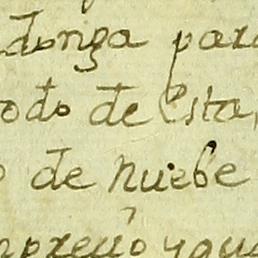 donga para
odo de Esta
o de nuebe